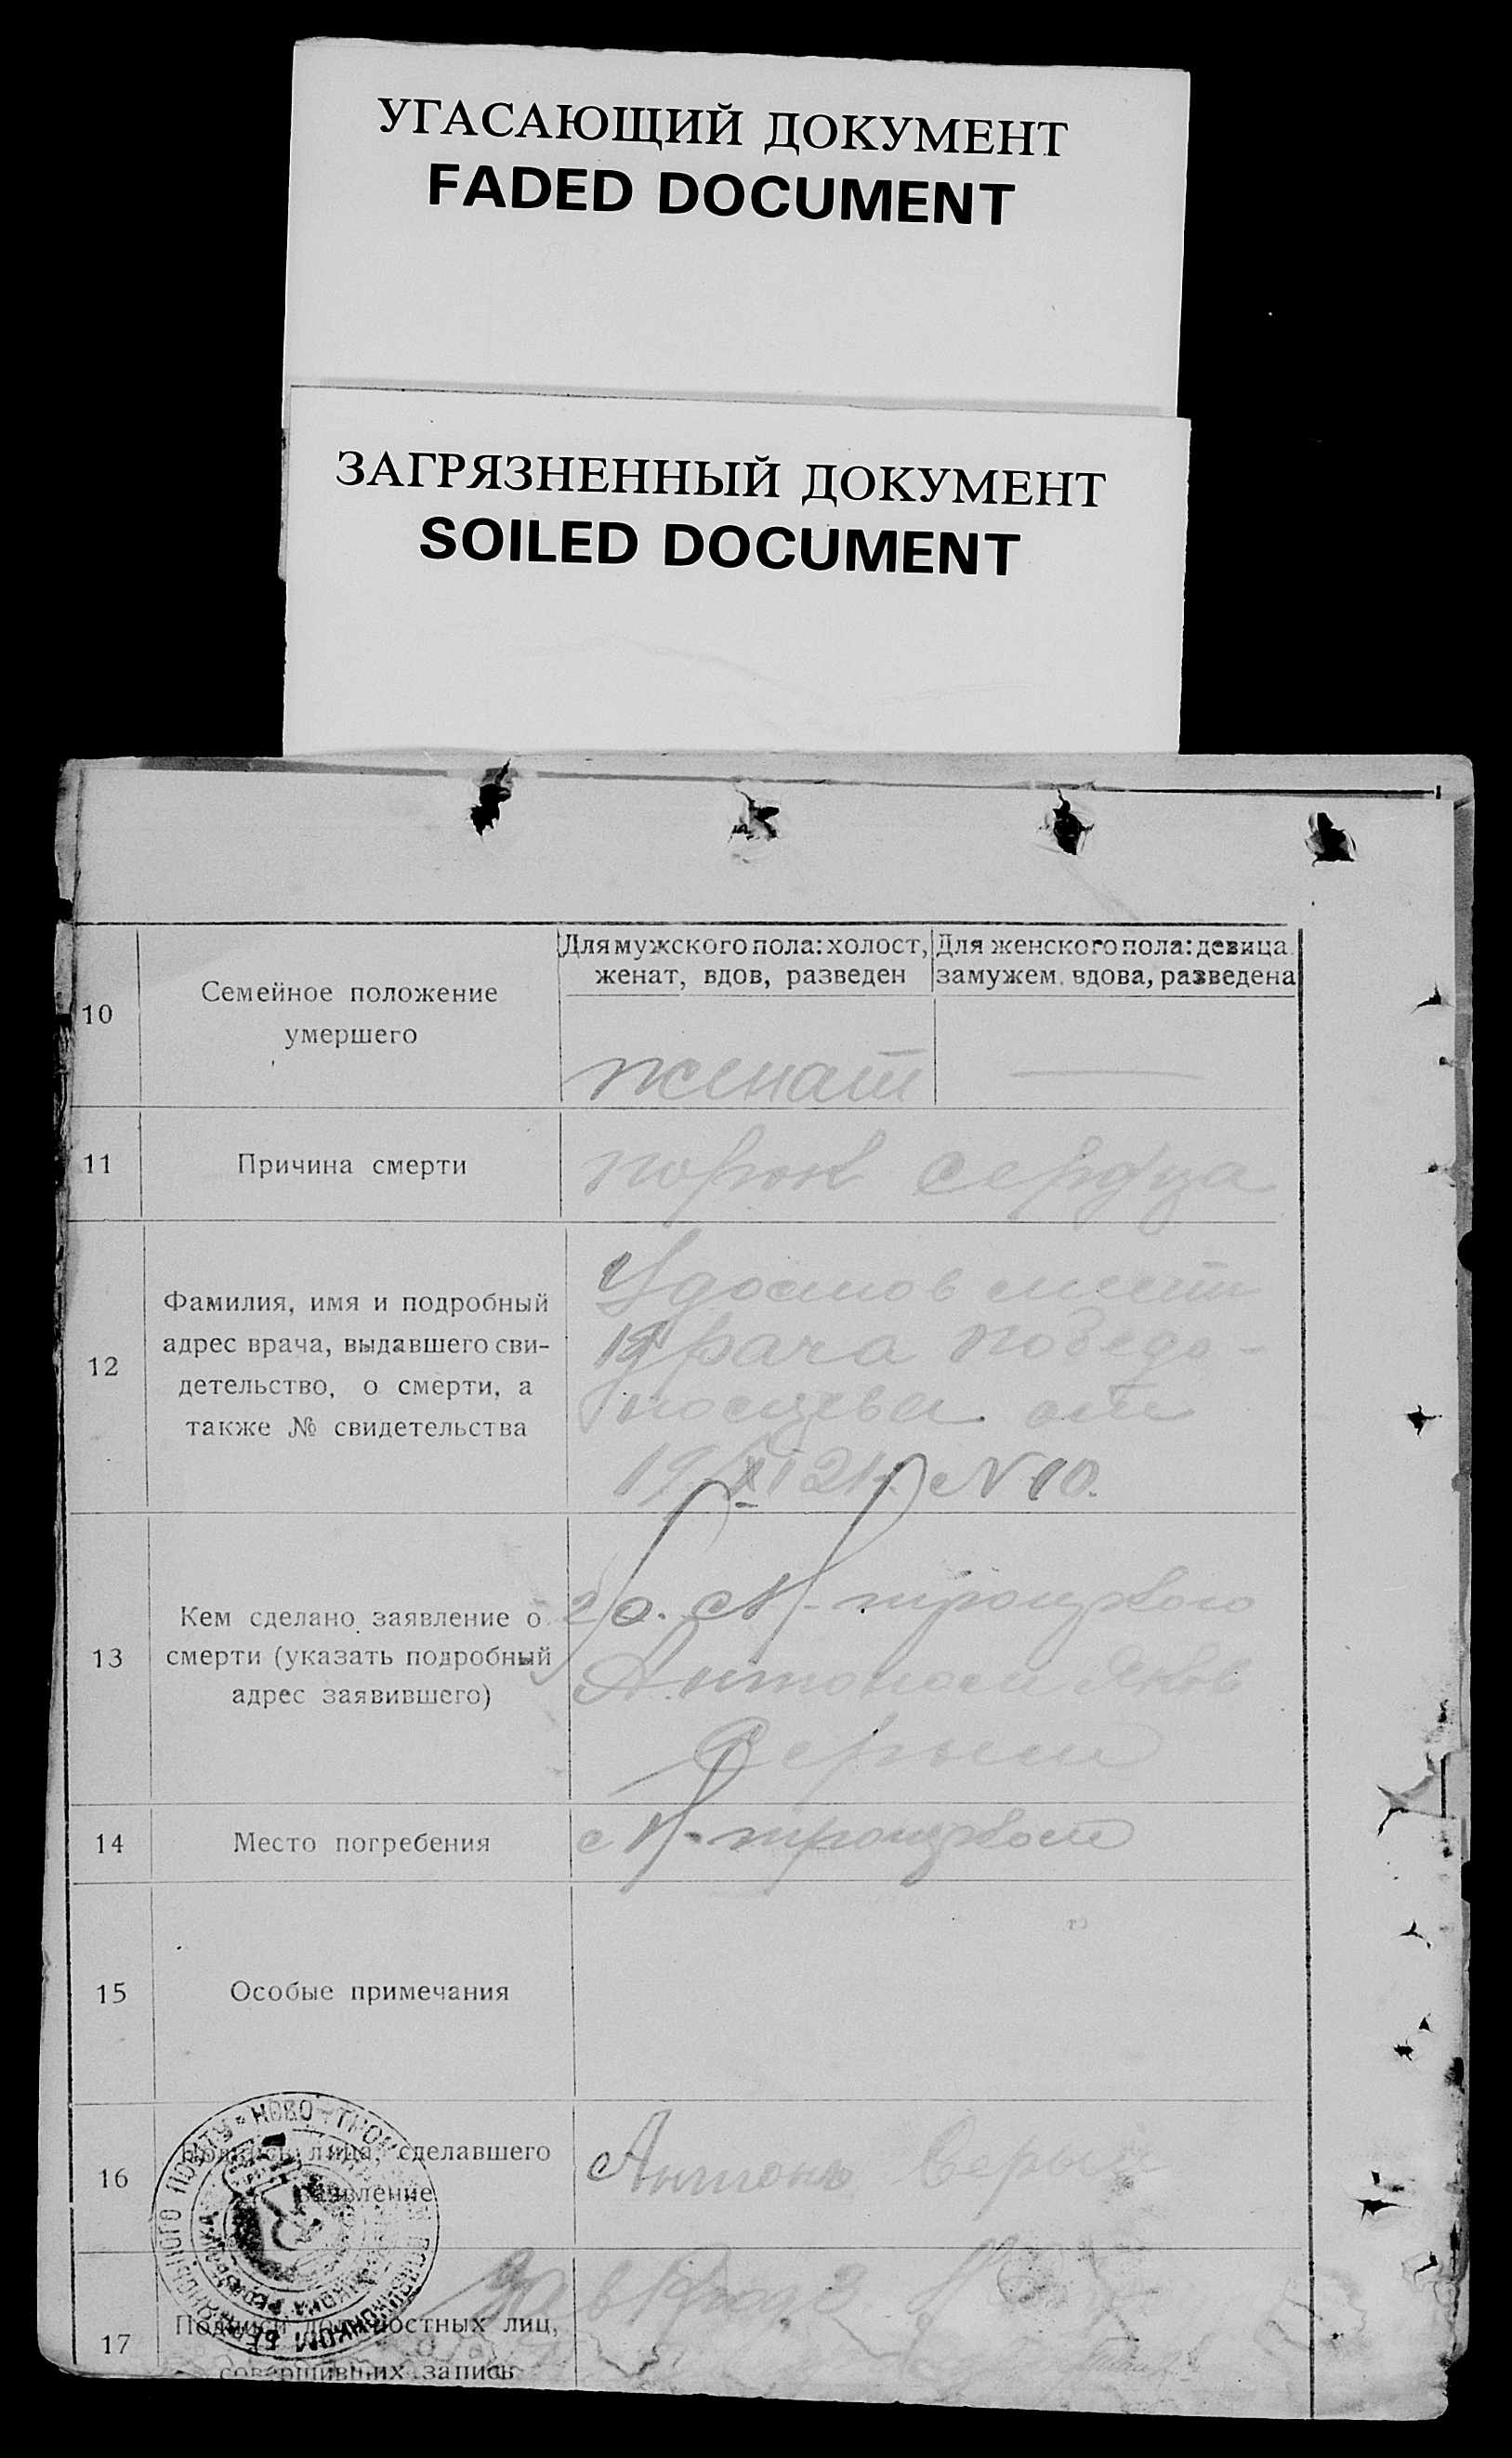 УГАСАЮЩИЙ ДОКУМЕНТ
FADED DOCUMENT
ЗАГРЯЗНЕННЫЙ ДОКУМЕНТ
SOILED DOCUMENT
10
Семейное положение
умершего
Для мужского пола: холост,
женат, вдов, разведен
Для женского пола: девица
замужем, вдова, разведена
женат
—
11
Причина смерти
порок сердца
12
Фамилия, имя и подробный
адрес врача, выдавшего сви-
детельство, о смерти, а
также № свидетельства
Удостов
врача Победо-
носцева от
19/XI 21 г. N 10.
13
Кем сделано заявление о
смерти (указать подробный
адрес заявившего)
N-троицкого
Антоном Яков
Серым
14
Место погребения
с N-троицком
15
Особые примечания
16
Подпись лица, сделавшего
заявление
Антон Серый
17
Подписи должностных лиц,
совершивших запись
Зав